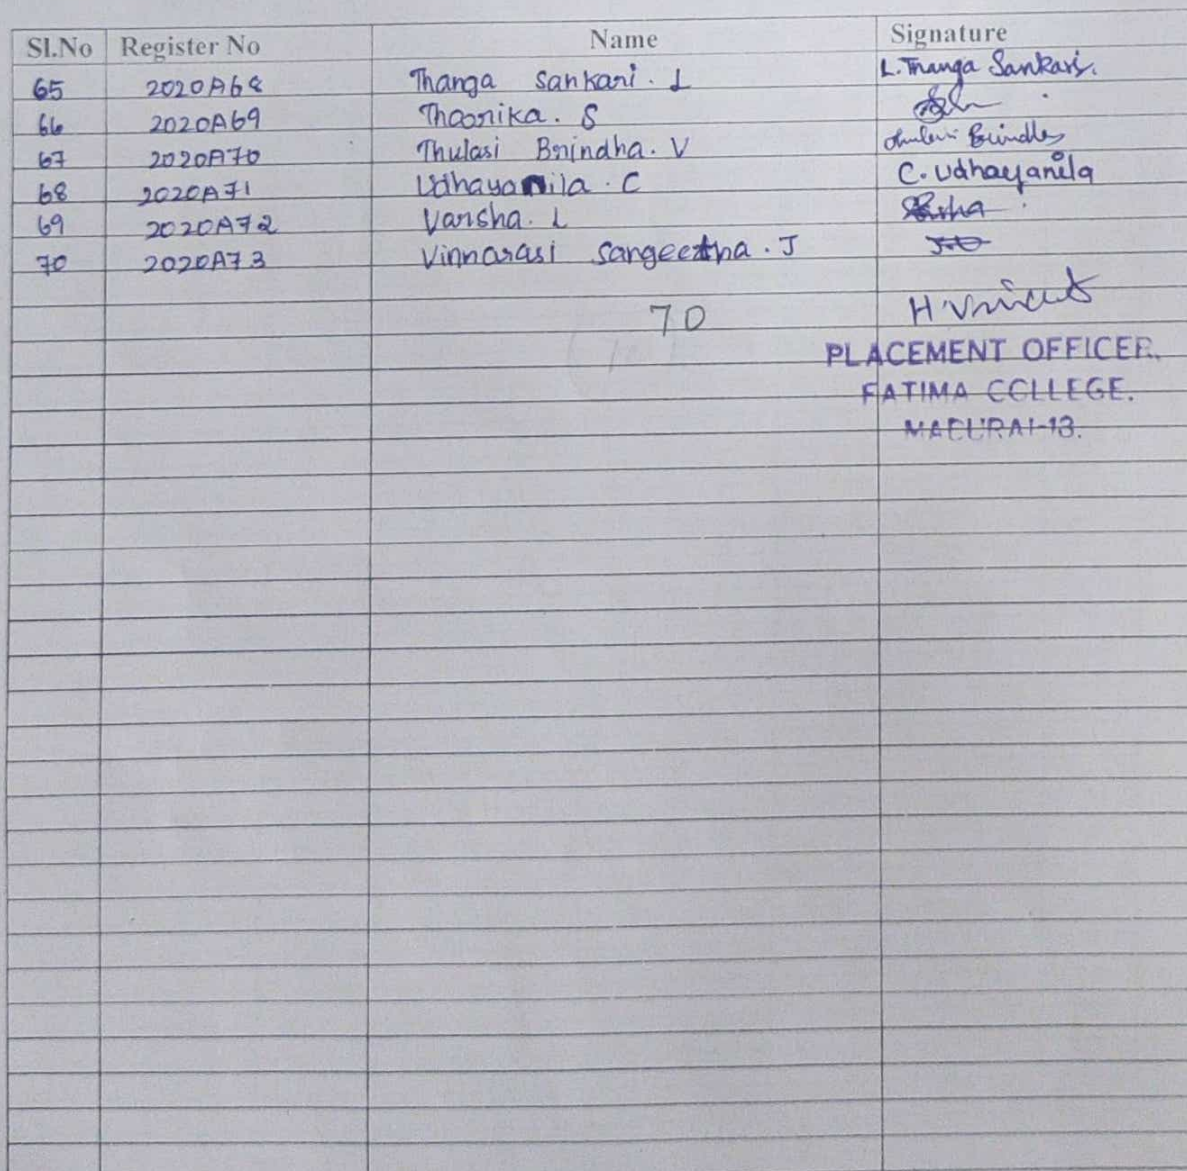 Sl.No Register No Name Signature
65 2020A68 Thanga Sankari. L L. Thanga Sankari.
66 2020A69 Thoonika. S
67 2020A70 Thulasi Brindha. V Thulasi Brindha
68 2020A71 Udhayanila. C C. Udhayanila
69 2020A72 Varsha. L
70 2020A73 Vinnarasi Sangeetha. J
70
PLACEMENT OFFICER.
FATIMA COLLEGE.
MADURAI-18.